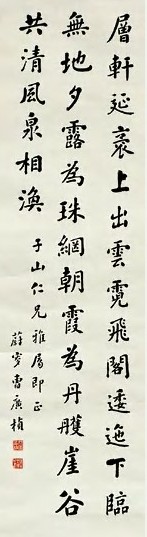 層軒延袤上出雲霓飛閣逶迤下臨
無地夕露為珠網朝霞為丹雘崖谷
共清風泉相渙
子山仁兄雅屬即正
蔚岑曹廣楨